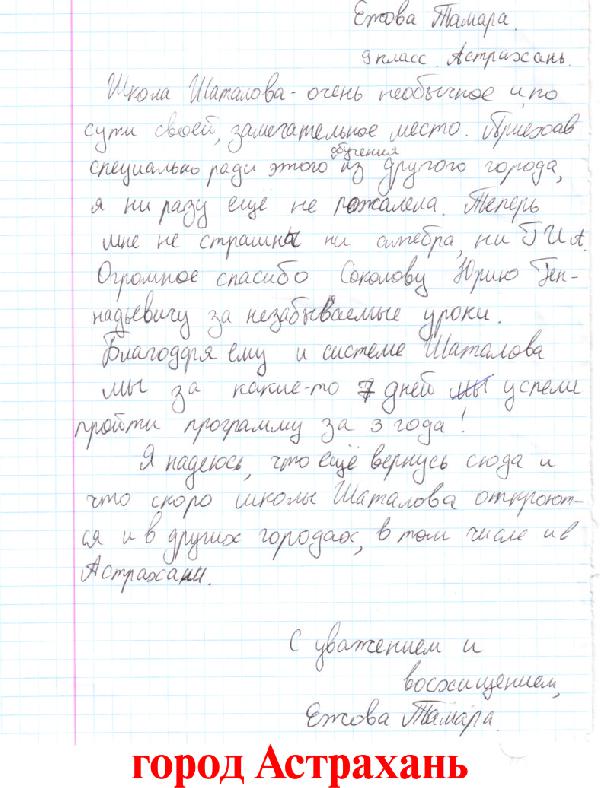 Ежова Тамара.
9 класс Астрахань.
Школа Шаталова - очень необычное и, по
сути своей, замечательное место. Приехав
обучения
специально ради этого из другого города,
я ни разу ещё не пожалела. Теперь
мне не страшна ни алгебра, ни ГИА.
Огромное спасибо Соколову Юрию Ген-
надьевичу за незабываемые уроки.
Благодаря ему и системе Шаталова
мы за какие-то 7 дней мы успели
пройти программу за 3 года!
Я надеюсь, что ещё вернусь сюда и
что скоро школы Шаталова откроют-
ся и в других городах, в том числе и в
Астрахани.
С уважением и
восхищением,
Ежова Тамара
город Астрахань